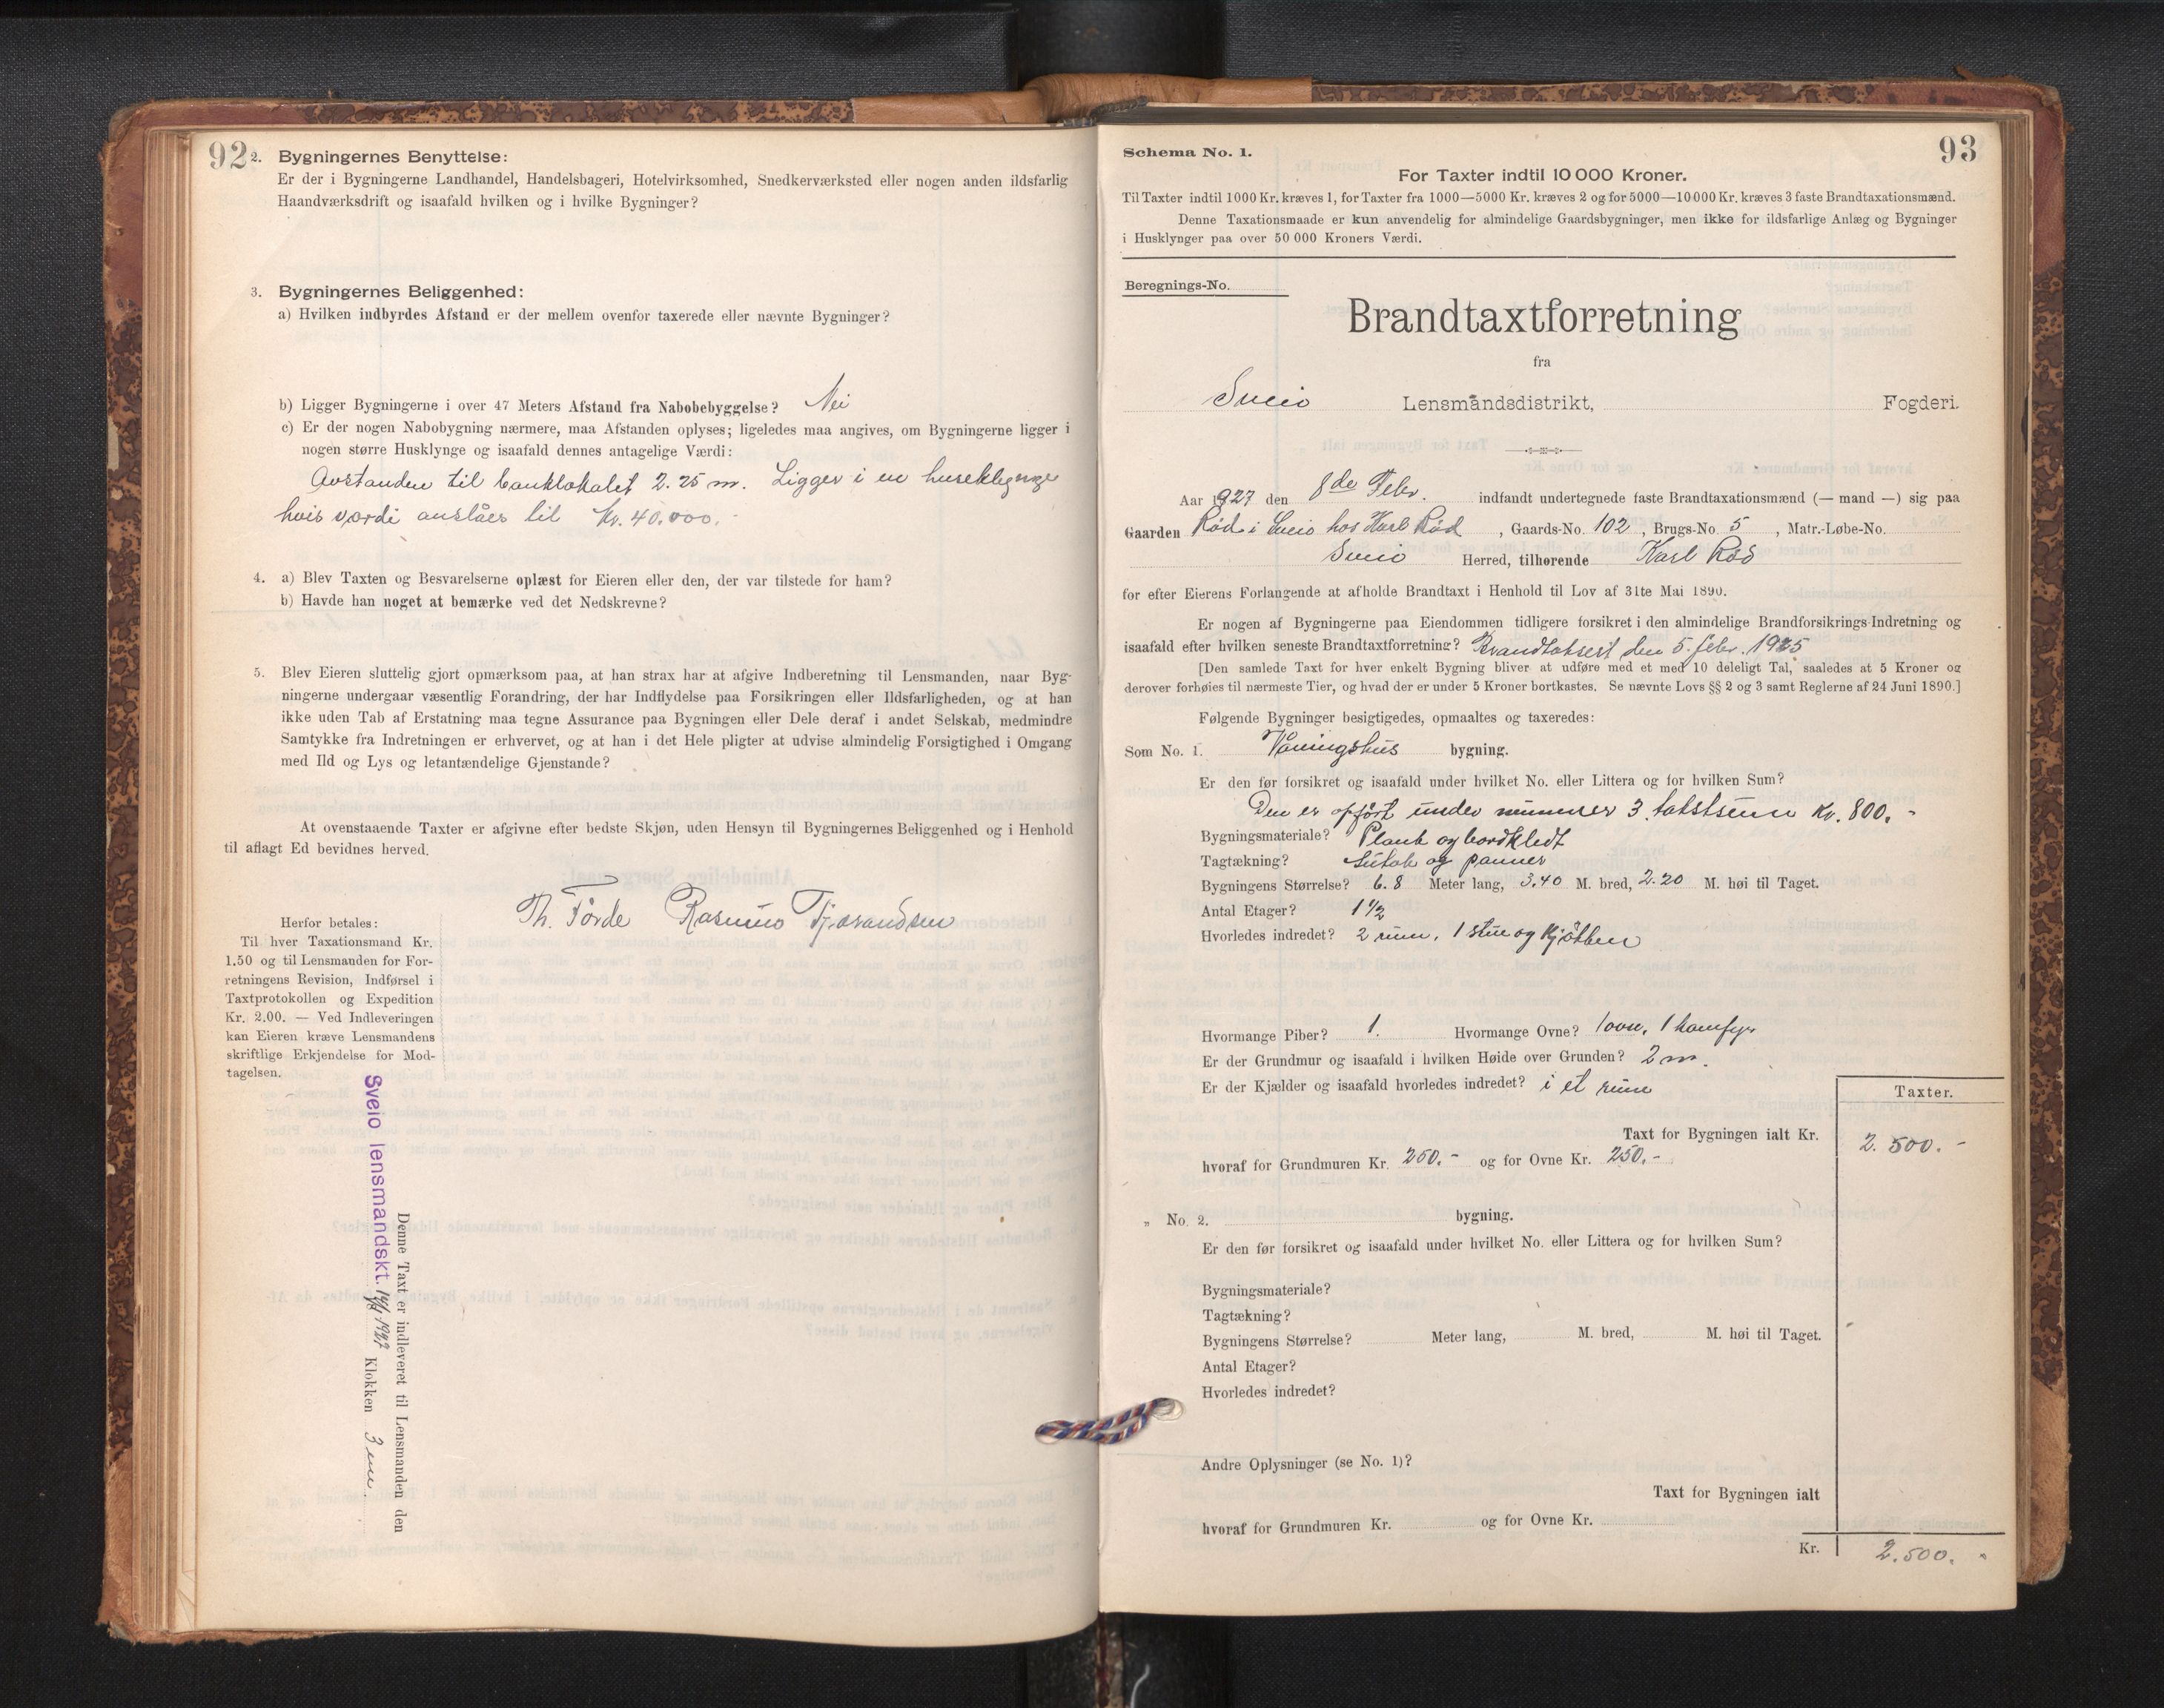 92
2. Bygningernes Benyttelse:
Er der i Bygningerne Landhandel, Handelsbageri, Hotelvirksomhed, Snedkerværksted eller nogen anden ildsfarlig
Haandværksdrift og isaafald hvilken og i hvilke Bygninger?
3. Bygningernes Beliggenhed:
a) Hvilken indbyrdes Afstand er der mellem ovenfor taxerede eller nævnte Bygninger?
b) Ligger Bygningerne i over 47 Meters Afstand fra Nabobebyggelse? Nei
c) Er der nogen Nabobygning nærmere, maa Afstanden oplyses; ligeledes maa angives, om Bygningerne ligger i
nogen større Husklynge og isaafald dennes antagelige Værdi:
Avstanden til banklokalet 2.25 m. Ligger i en huseklynge
hvis værdi anslåes til Kr. 40.000.-
4. a) Blev Taxten og Besvarelserne oplæst for Eieren eller den, der var tilstede for ham?
b) Havde han noget at bemærke ved det Nedskrevne?
5. Blev Eieren sluttelig gjort opmærksom paa, at han strax har at afgive Indberetning til Lensmanden, naar Byg-
ningerne undergaar væsentlig Forandring, der har Indflydelse paa Forsikringen eller Ildsfarligheden, og at han
ikke uden Tab af Erstatning maa tegne Assurance paa Bygningen eller Dele deraf i andet Selskab, medmindre
Samtykke fra Indretningen er erhvervet, og at han i det Hele pligter at udvise almindelig Forsigtighed i Omgang
med Ild og Lys og letantændelige Gjenstande?
At ovenstaaende Taxter er afgivne efter bedste Skjøn, uden Hensyn til Bygningernes Beliggenhed og i Henhold
til aflagt Ed bevidnes herved.
Th. Førde Rasmus Tjernandsen
Herfor betales:
Til hver Taxationsmand Kr.
1.50 og til Lensmanden for For-
retningens Revision, Indførsel i
Taxtprotokollen og Expedition
Kr. 2.00. — Ved Indleveringen
kan Eieren kræve Lensmandens
skriftlige Erkjendelse for Mod-
tagelsen.
Denne Taxt er indleveret til Lensmanden den
Sveio lensmandskt. 1927 Klokken 3 em.
93
Schema No. 1.
For Taxter indtil 10 000 Kroner.
Til Taxter indtil 1000 Kr. kræves 1, for Taxter fra 1000—5000 Kr. kræves 2 og for 5000—10000 Kr. kræves 3 faste Brandtaxationsmænd.
Denne Taxationsmaade er kun anvendelig for almindelige Gaardsbygninger, men ikke for ildsfarlige Anlæg og Bygninger
i Husklynger paa over 50 000 Kroners Værdi.
Beregnings-No.
Brandtaxtforretning
fra
Sveio Lensmandsdistrikt, Fogderi.
Aar 1927 den 8de Febr. indfandt undertegnede faste Brandtaxationsmænd (— mand —) sig paa
Gaarden Rød i Sveio hos Karl Rød, Gaards-No. 102, Brugs-No. 5, Matr.-Løbe-No.
Sveio Herred, tilhørende Karl Rød
for efter Eierens Forlangende at afholde Brandtaxt i Henhold til Lov af 31te Mai 1890.
Er nogen af Bygningerne paa Eiendommen tidligere forsikret i den almindelige Brandforsikrings-Indretning og
isaafald efter hvilken seneste Brandtaxtforretning? Brandtaksert den 5. febr. 1925
[Den samlede Taxt for hver enkelt Bygning bliver at udføre med et med 10 deleligt Tal, saaledes at 5 Kroner og
derover forhøies til nærmeste Tier, og hvad der er under 5 Kroner bortkastes. Se nævnte Lovs §§ 2 og 3 samt Reglerne af 24 Juni 1890.]
Følgende Bygninger besigtigedes, opmaaltes og taxeredes:
Som No. 1. Våningshus bygning.
Er den før forsikret og isaafald under hvilket No. eller Littera og for hvilken Sum?
Den er opført under nummer 3. takstsum Kr. 800.-
Bygningsmateriale? Plank og bordkledt
Tagtækning? Sutak og panner
Bygningens Størrelse? 6.8 Meter lang, 3.40 M. bred, 2.20 M. høi til Taget.
Antal Etager? 1 1/2
Hvorledes indredet? 2 rum, 1 stue og kjøkken
Hvormange Piber? 1. Hvormange Ovne? 1 ovn, 1 komfyr
Er der Grundmur og isaafald i hvilken Høide over Grunden? 2 m.
Er der Kjælder og isaafald hvorledes indredet? i et rum
Taxter.
Taxt for Bygningen ialt Kr. 2.500.-
hvoraf for Grundmuren Kr. 250.- og for Ovne Kr. 250.-
„ No. 2. bygning.
Er den før forsikret og isaafald under hvilket No. eller Littera og for hvilken Sum?
Bygningsmateriale?
Tagtækning?
Bygningens Størrelse? Meter lang, M. bred, M. høi til Taget.
Antal Etager?
Hvorledes indredet?
Andre Oplysninger (se No. 1)?
Taxt for Bygningen ialt
hvoraf for Grundmuren Kr. og for Ovne Kr.
Kr. 2.500.-